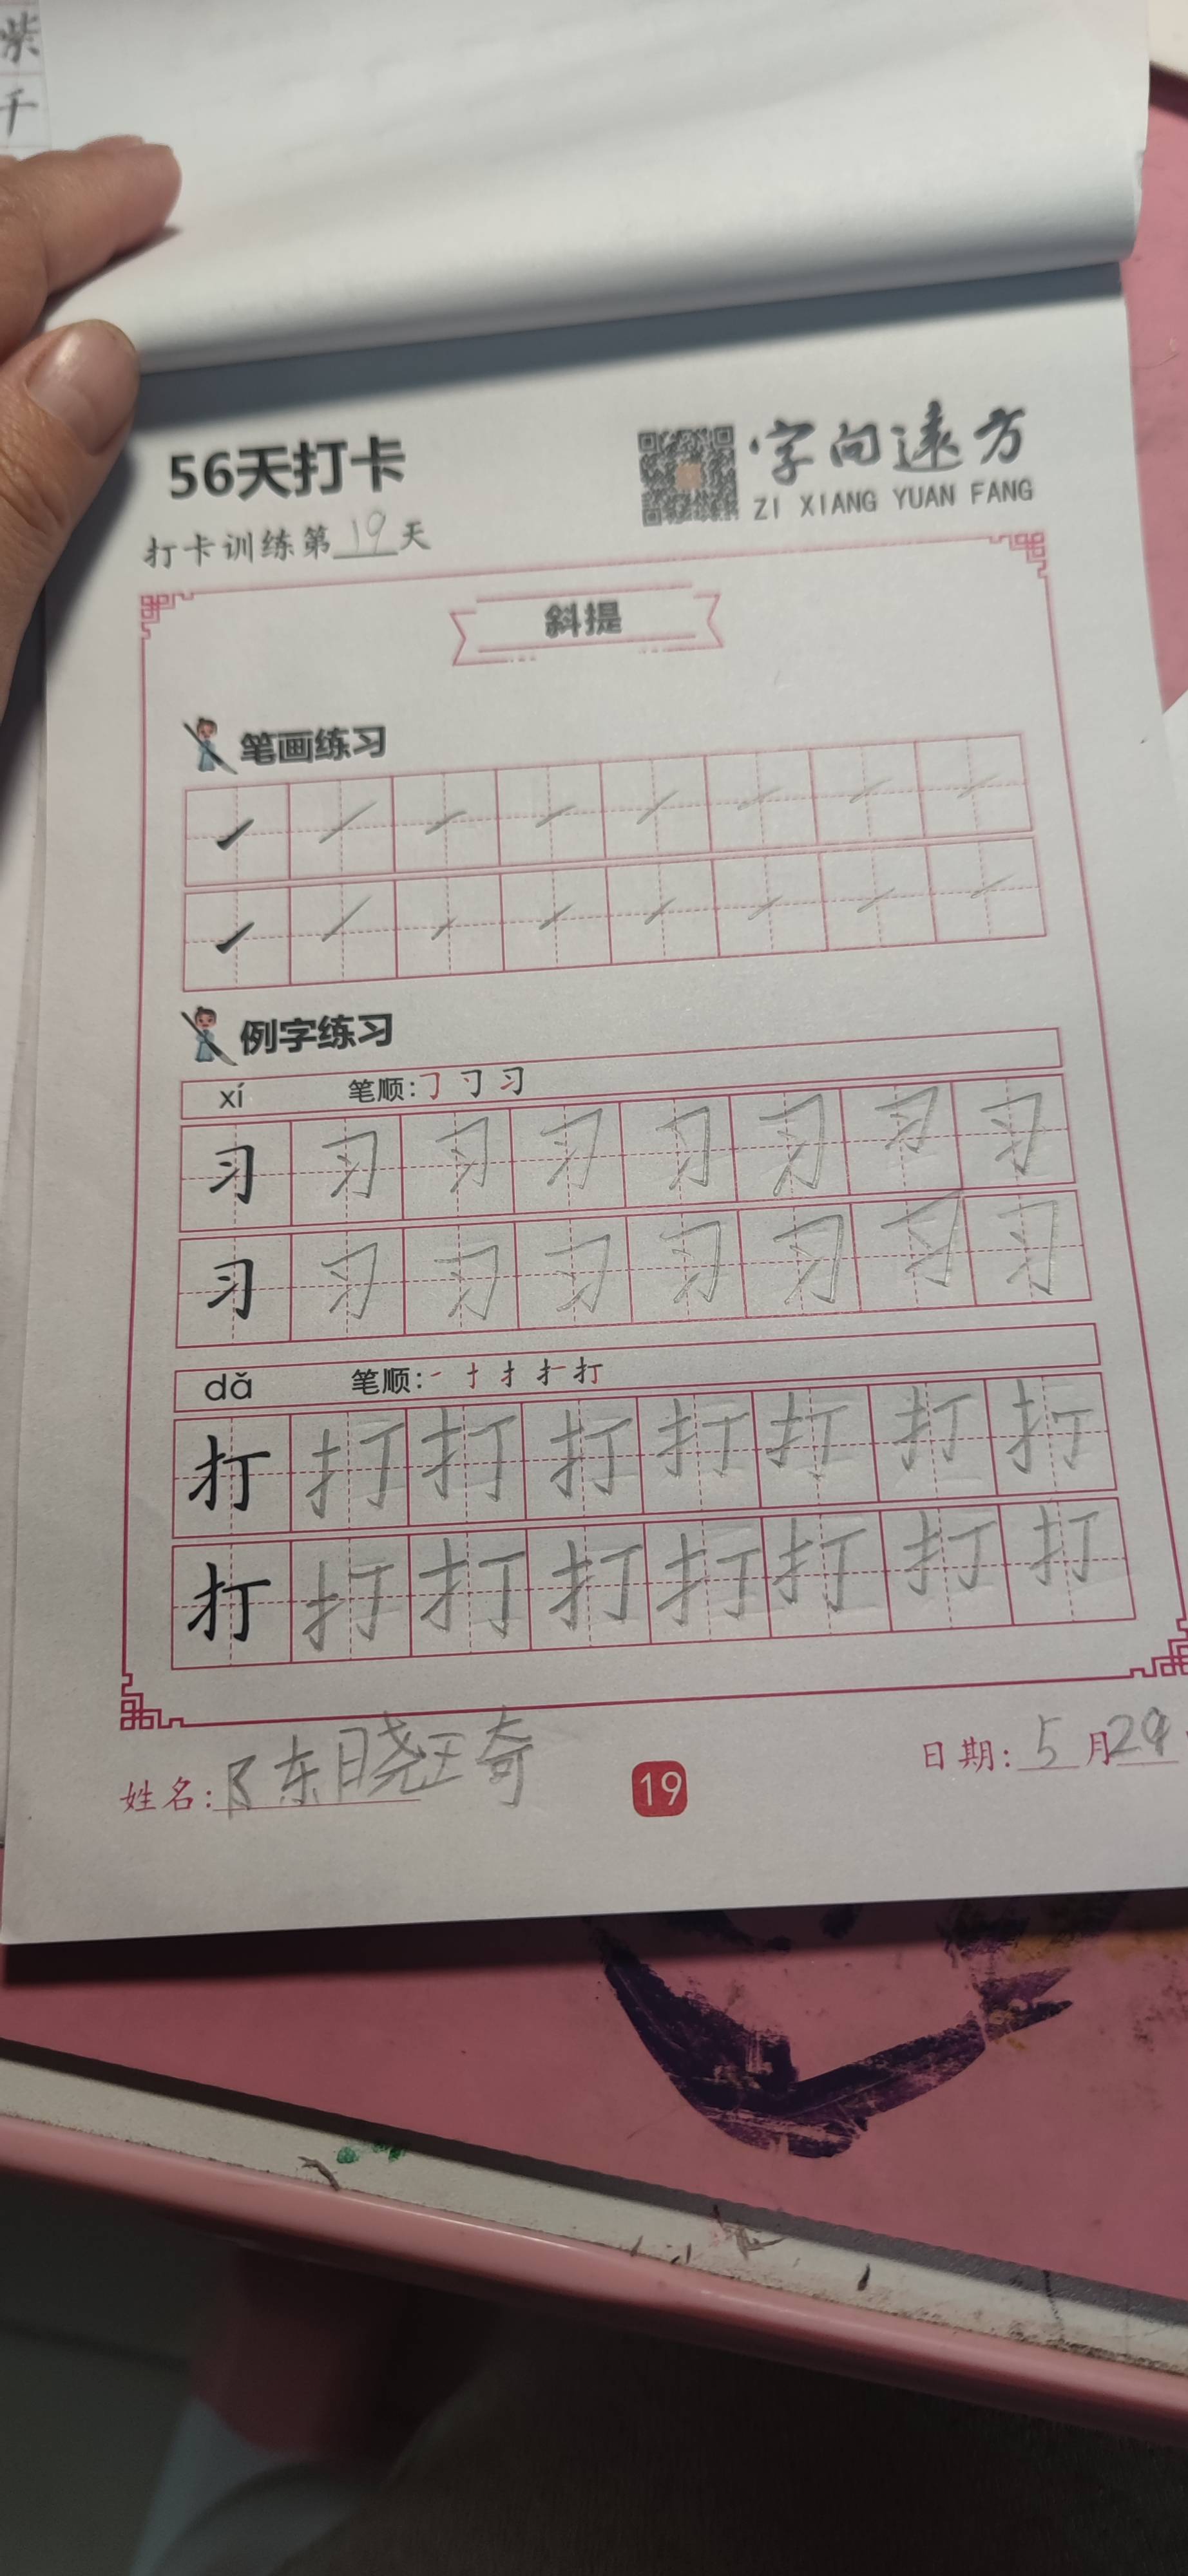 紫
千
56天打卡
字向遠方
ZI XIANG YUAN FANG
打卡训练第19天
斜提
笔画练习
例字练习
xí 笔顺:㇆ 习
习 习 习 习 习 习 习 习
习 习 习 习 习 习 习 习
dǎ 笔顺:一 十 扌 打
打 打 打 打 打 打 打 打
打 打 打 打 打 打 打 打
姓名:陈晓王奇
19
日期:5月29